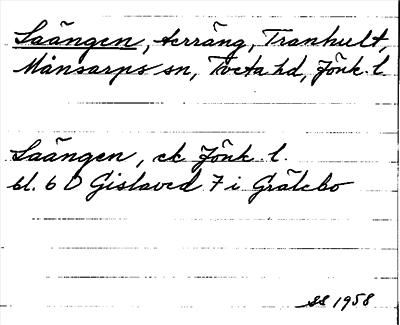 Saängen, terräng, Tranhult,
Månsarps sn, Tveta hd, Jönk. l.
Saängen, ek Jönk. l.
bl. 6 D Gislaved 7 i Grälebo
SS 1958